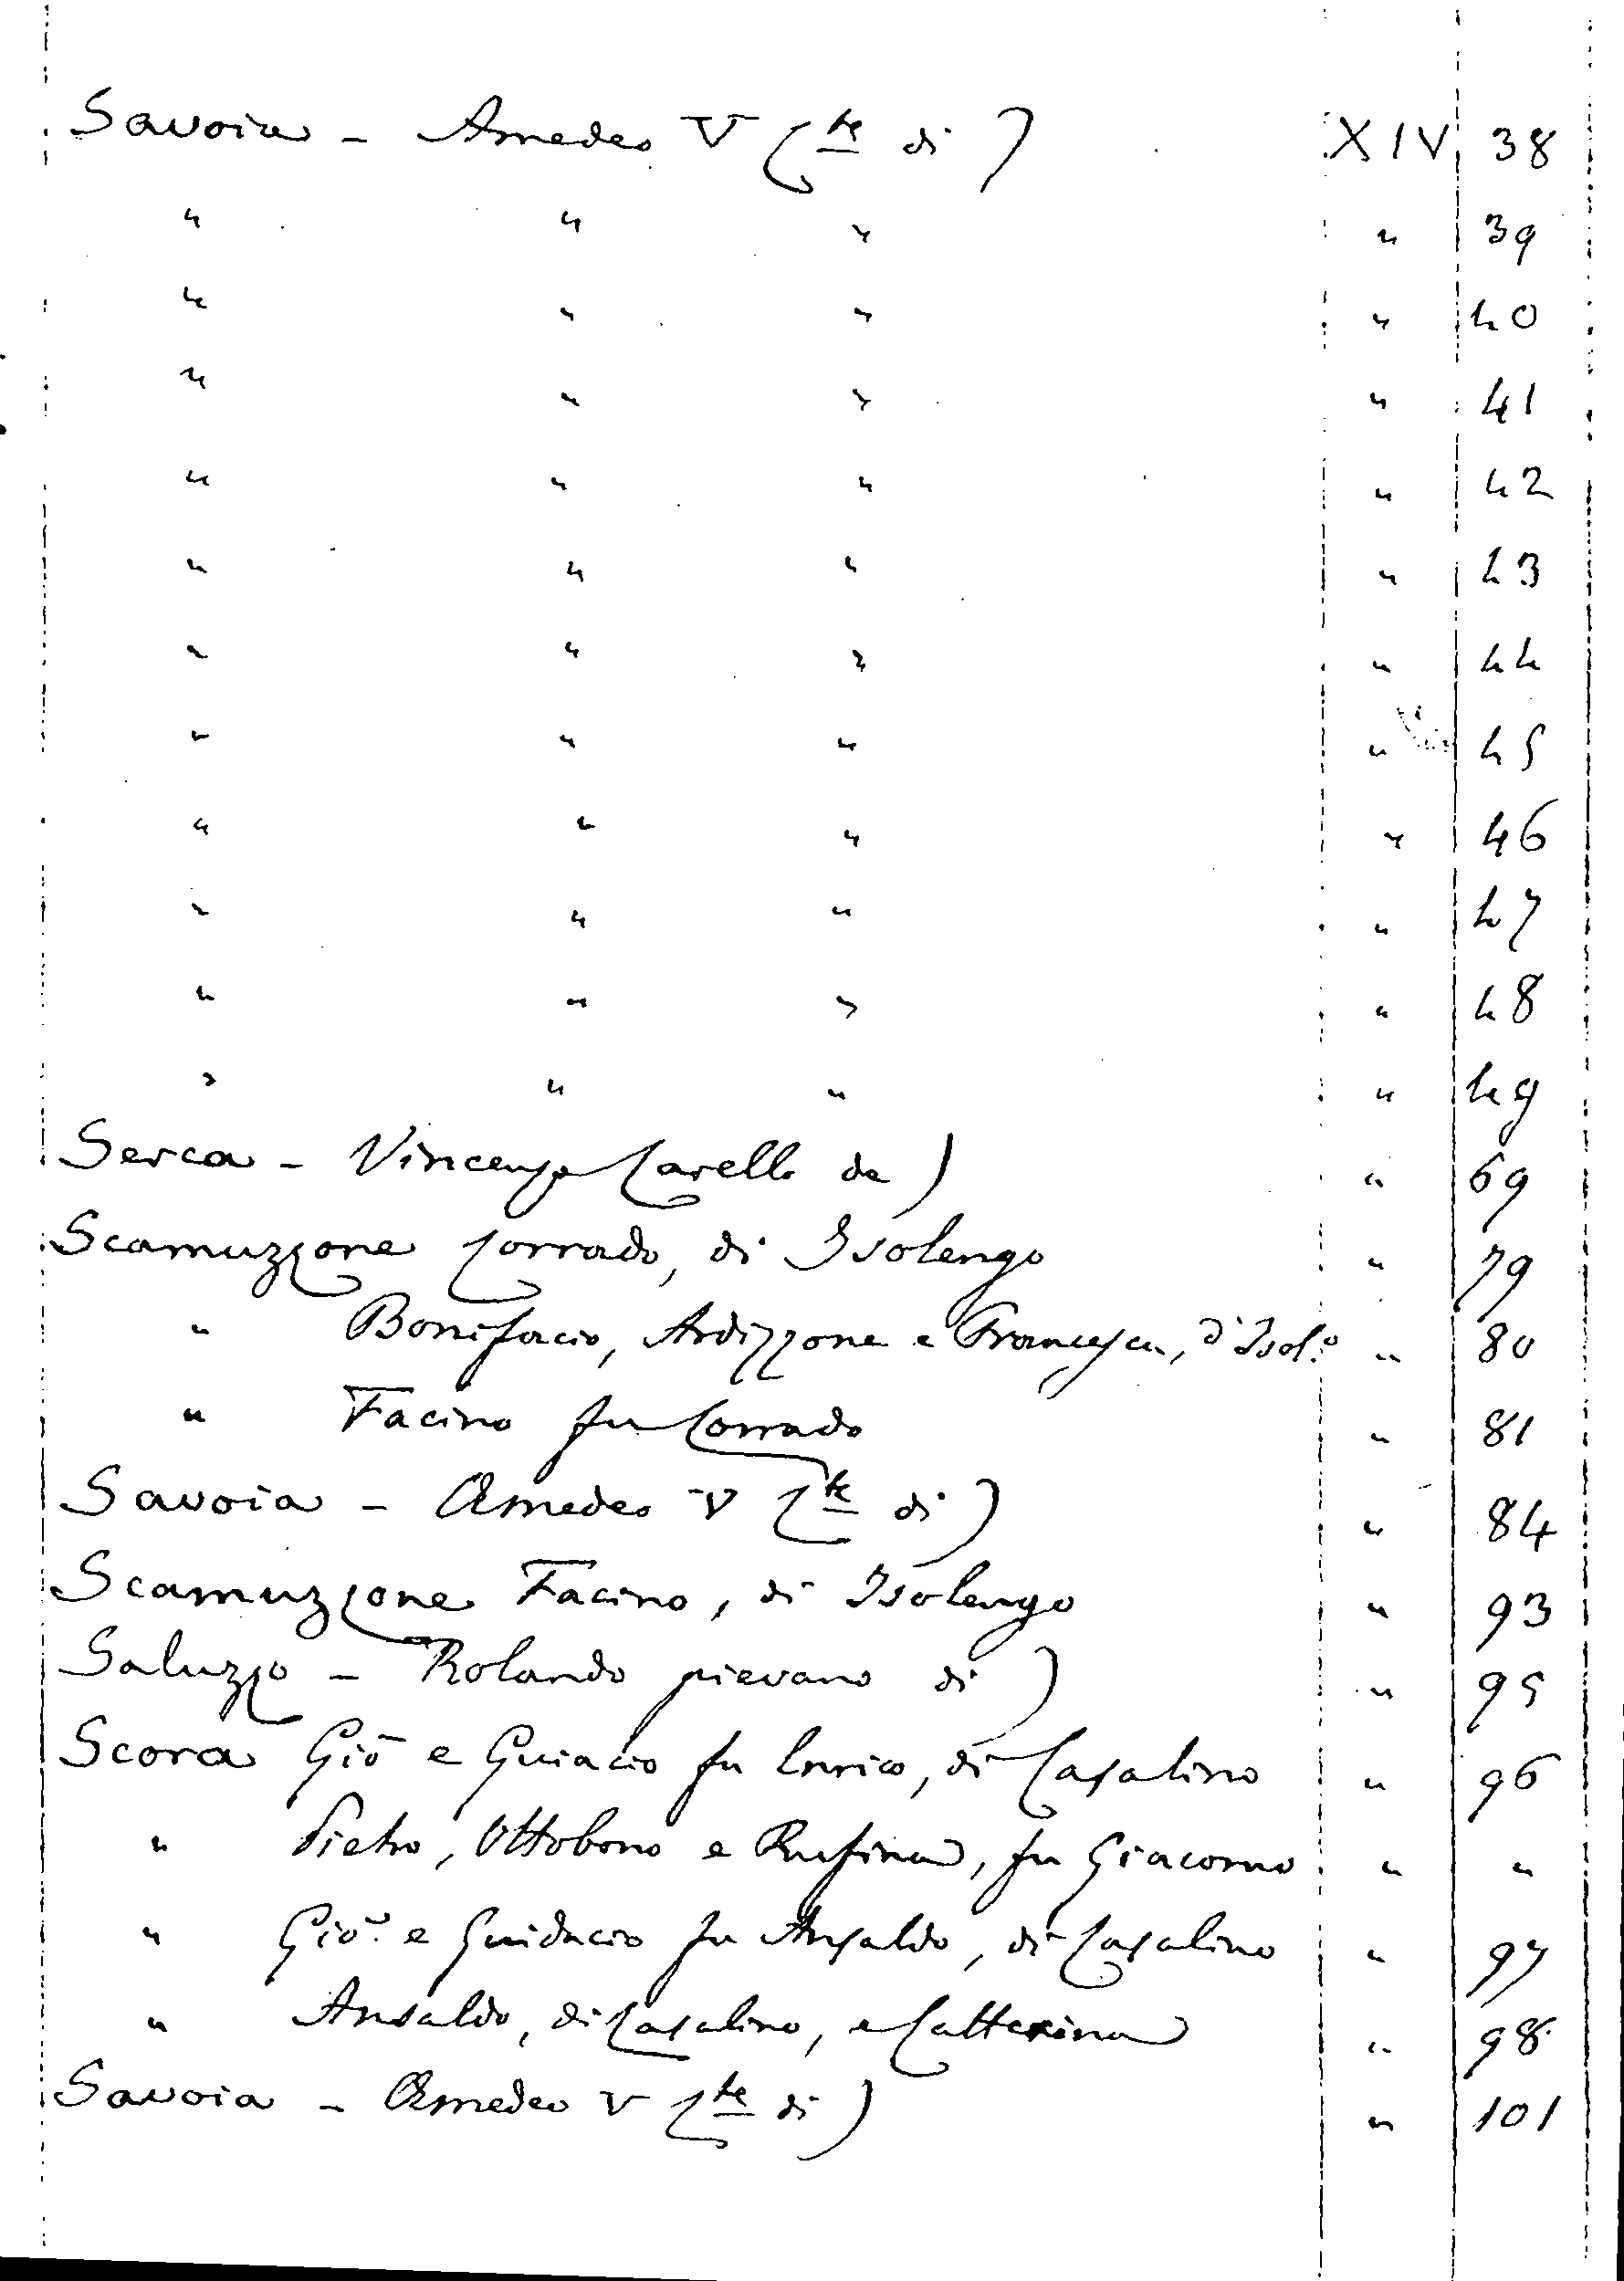 Savoia - Amedeo V (Cte di) XIV 38
" " " " 39
" " " " 40
" " " " 41
" " " " 42
" " " " 43
" " " " 44
" " " " 45
" " " " 46
" " " " 47
" " " " 48
" " " " 49
Serca - Vincenzo Carello da) " 69
Scamuzzone Corrado, di Isolengo " 79
" Bonifacio, Ardizzone e Francesca, d'Isol.o " 80
" Facino fu Corrado " 81
Savoia - Amedeo V (Cte di) " 84
Scamuzzone Facino, di Isolengo " 93
Saluzzo - Rolando pievano di) " 95
Scora Giō e Guiacio fu Enrico, di Casalino " 96
" Pietro, Ottobono e Rufina, fu Giacomo " "
" Gio. e Guiducio fu Ansaldo, di Casalino " 97
" Ansaldo, di Casalino, e Catterina " 98
Savoia - Amedeo V (Cte di) " 101